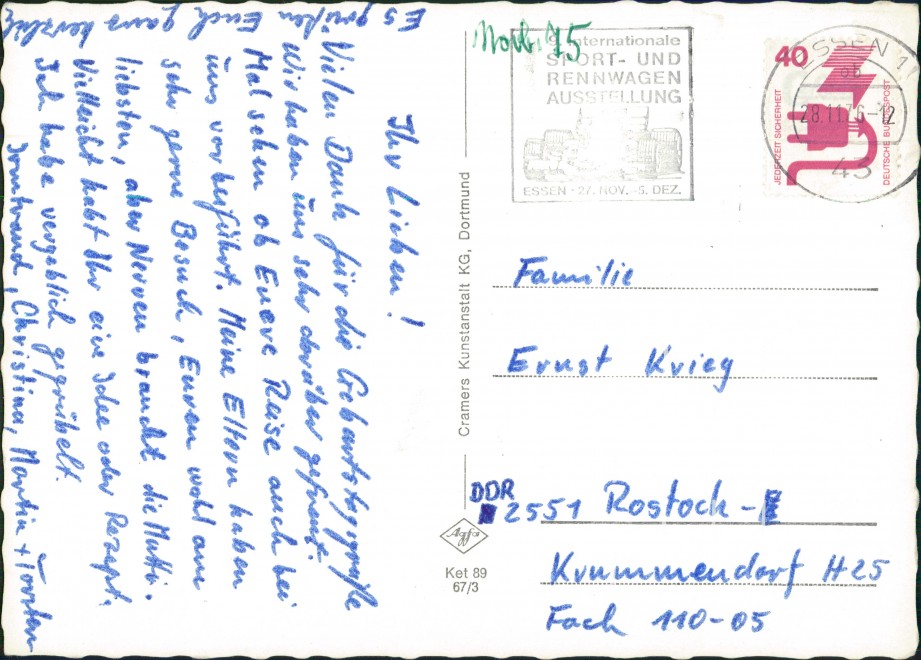 Ihr Lieben!
Vielen Dank für die Geburtstagsgrüße
Wir haben uns sehr darüber gefreut.
Mal sehen ob Euere Reise auch bei
uns vorbeiführt. Meine Eltern haben
sehr gerne Besuch, Euren wohl am
liebsten, aber Nerven braucht die Mutti.
Vielleicht habt Ihr eine Idee oder Rezept.
Ich habe vergeblich gegrübelt.
Es grüßen Euch ganz herzlich
Irmtraud, Christina, Martin + Torsten
Cramers Kunstanstalt KG, Dortmund
Agfa
Ket 89
67/3
Internationale
SPORT- UND
RENNWAGEN
AUSSTELLUNG
ESSEN · 27. NOV. -5. DEZ.
40
JEDERZEIT SICHERHEIT
DEUTSCHE BUNDESPOST
ESSEN 1
28.11.76-12
43
Familie
Ernst Krieg
DDR
2551 Rostock-
Krummendorf H25
Fach 110-05